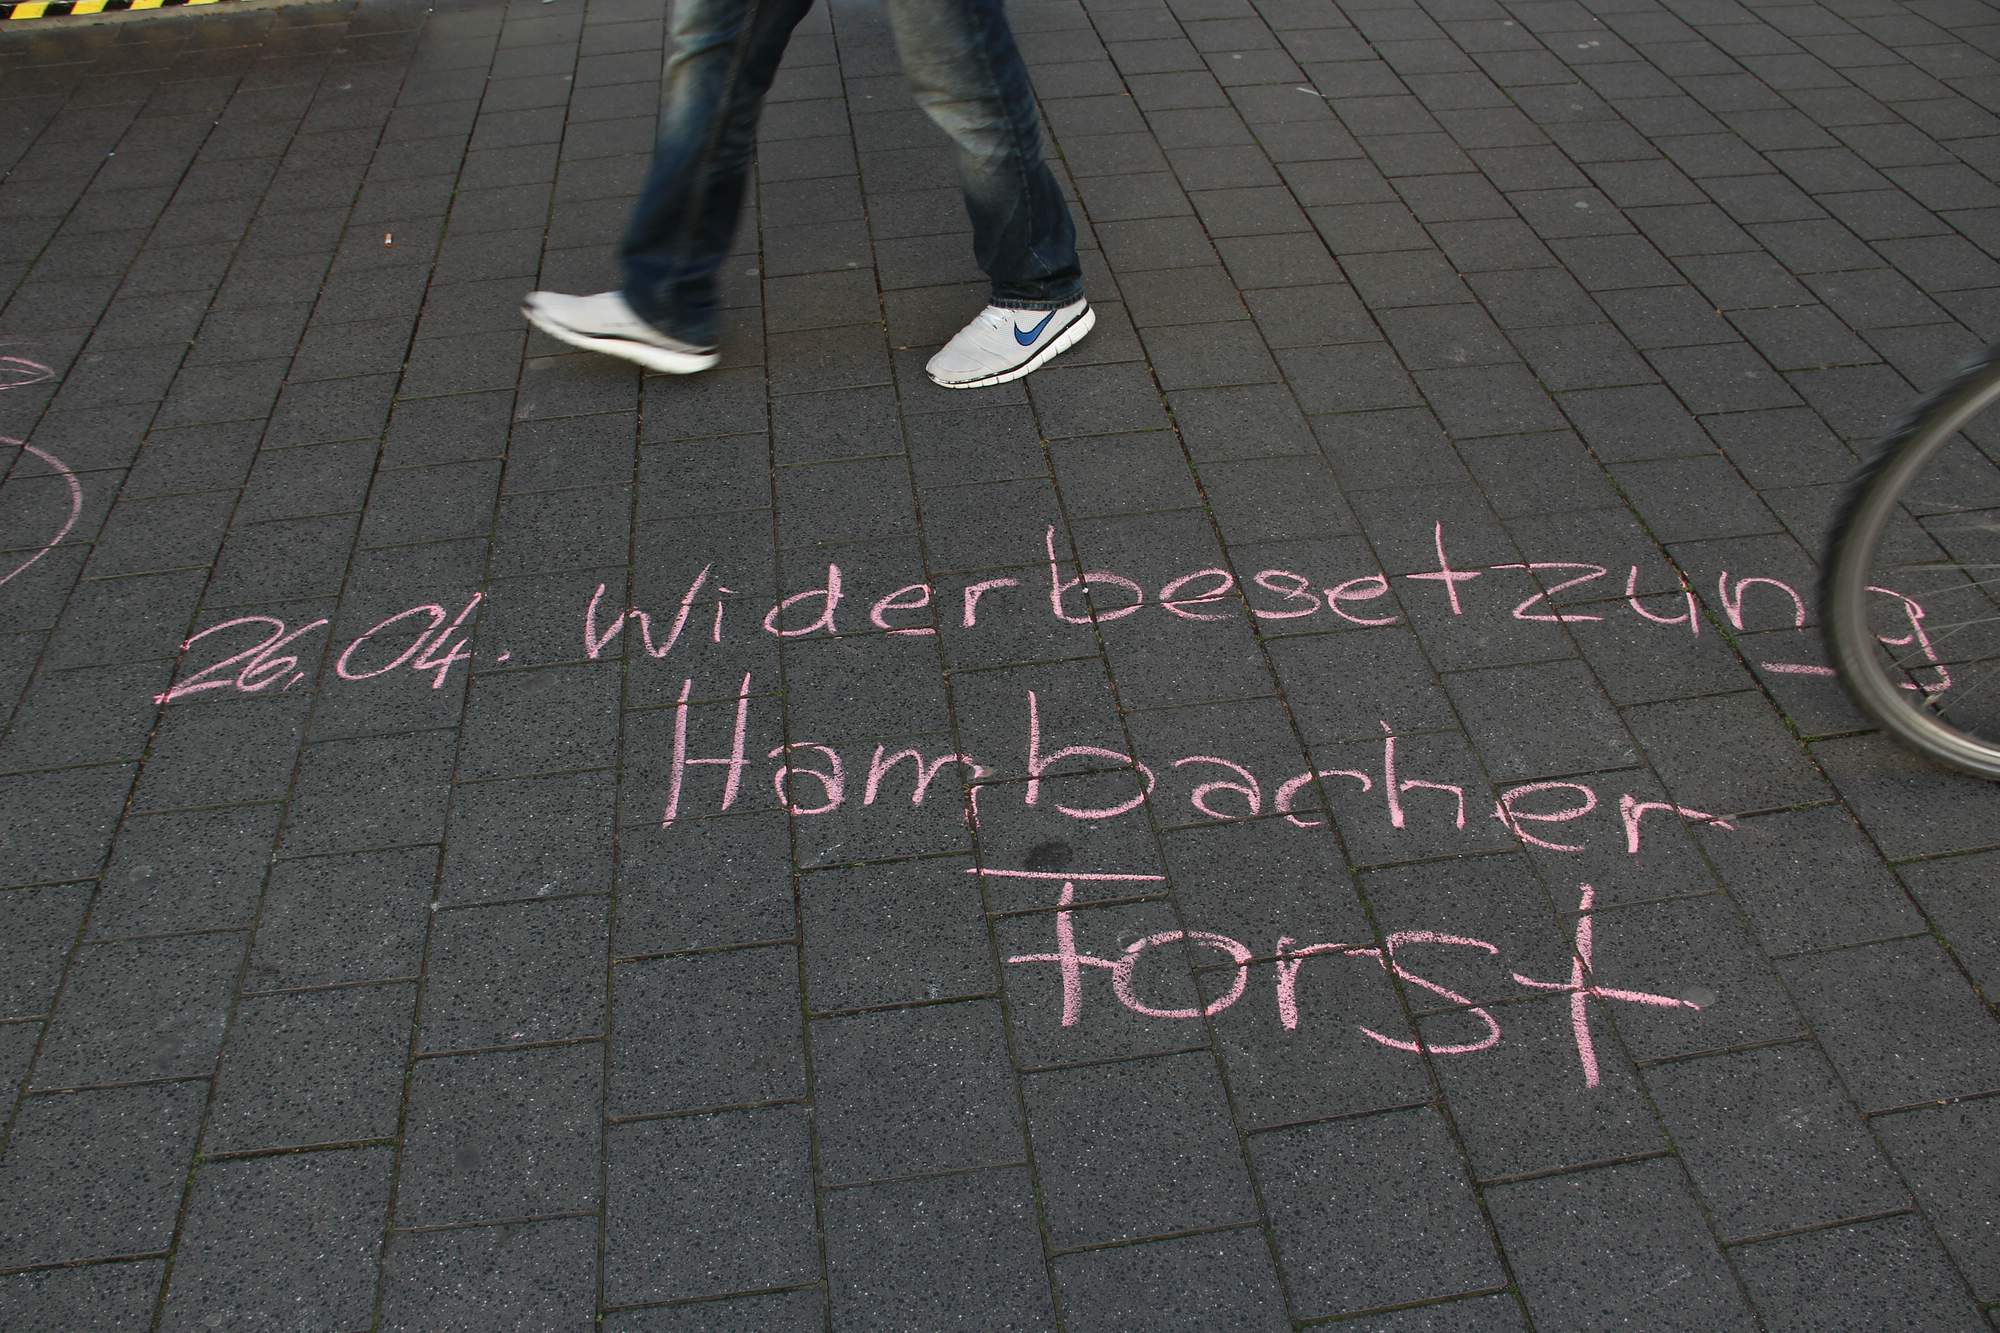 26.04. Widerbesetzung
Hambacher
Forst